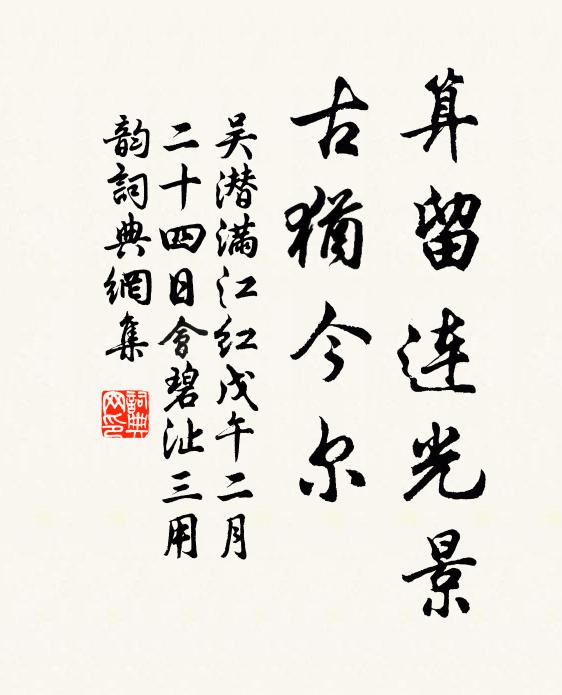 算留连光景
古犹今尔
吴潜满江红戊午二月
二十四日会碧沚三用
韵词典网集
词典
网印